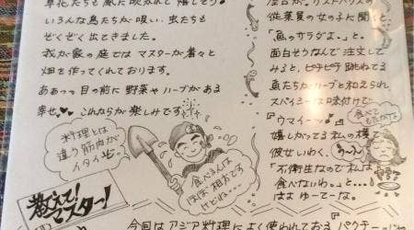 草花たちも風に吹かれて嬉しそう♪
いろんな鳥たちが吸い、虫たちも
ぞくぞく出てきました。
我が家の庭ではマスターが着々と
畑を作ってくれております。
ああっ。目の前に野菜やハーブがある
幸せ♥♥これからが楽しみです
料理とは
違う筋肉が
イタイぜ。
食べるんは
ほぼ祖お
です
けどね…
教えて!
マスター!
従業員の女の子に聞くと
「魚のサラダよ。」と。
面白そうなんで注文して
みると、ピチピチ跳ねてる
魚たちがハーブと和えられ
スパイシーな味付けで
「ウマイーッ!」
嬉しがってる私の横
彼女いわく、
「不衛生なので私は
食べないわよ。」と…
はよゆーてーな。
う〜っ
今回はアジア料理によく使われておる『パクチー』